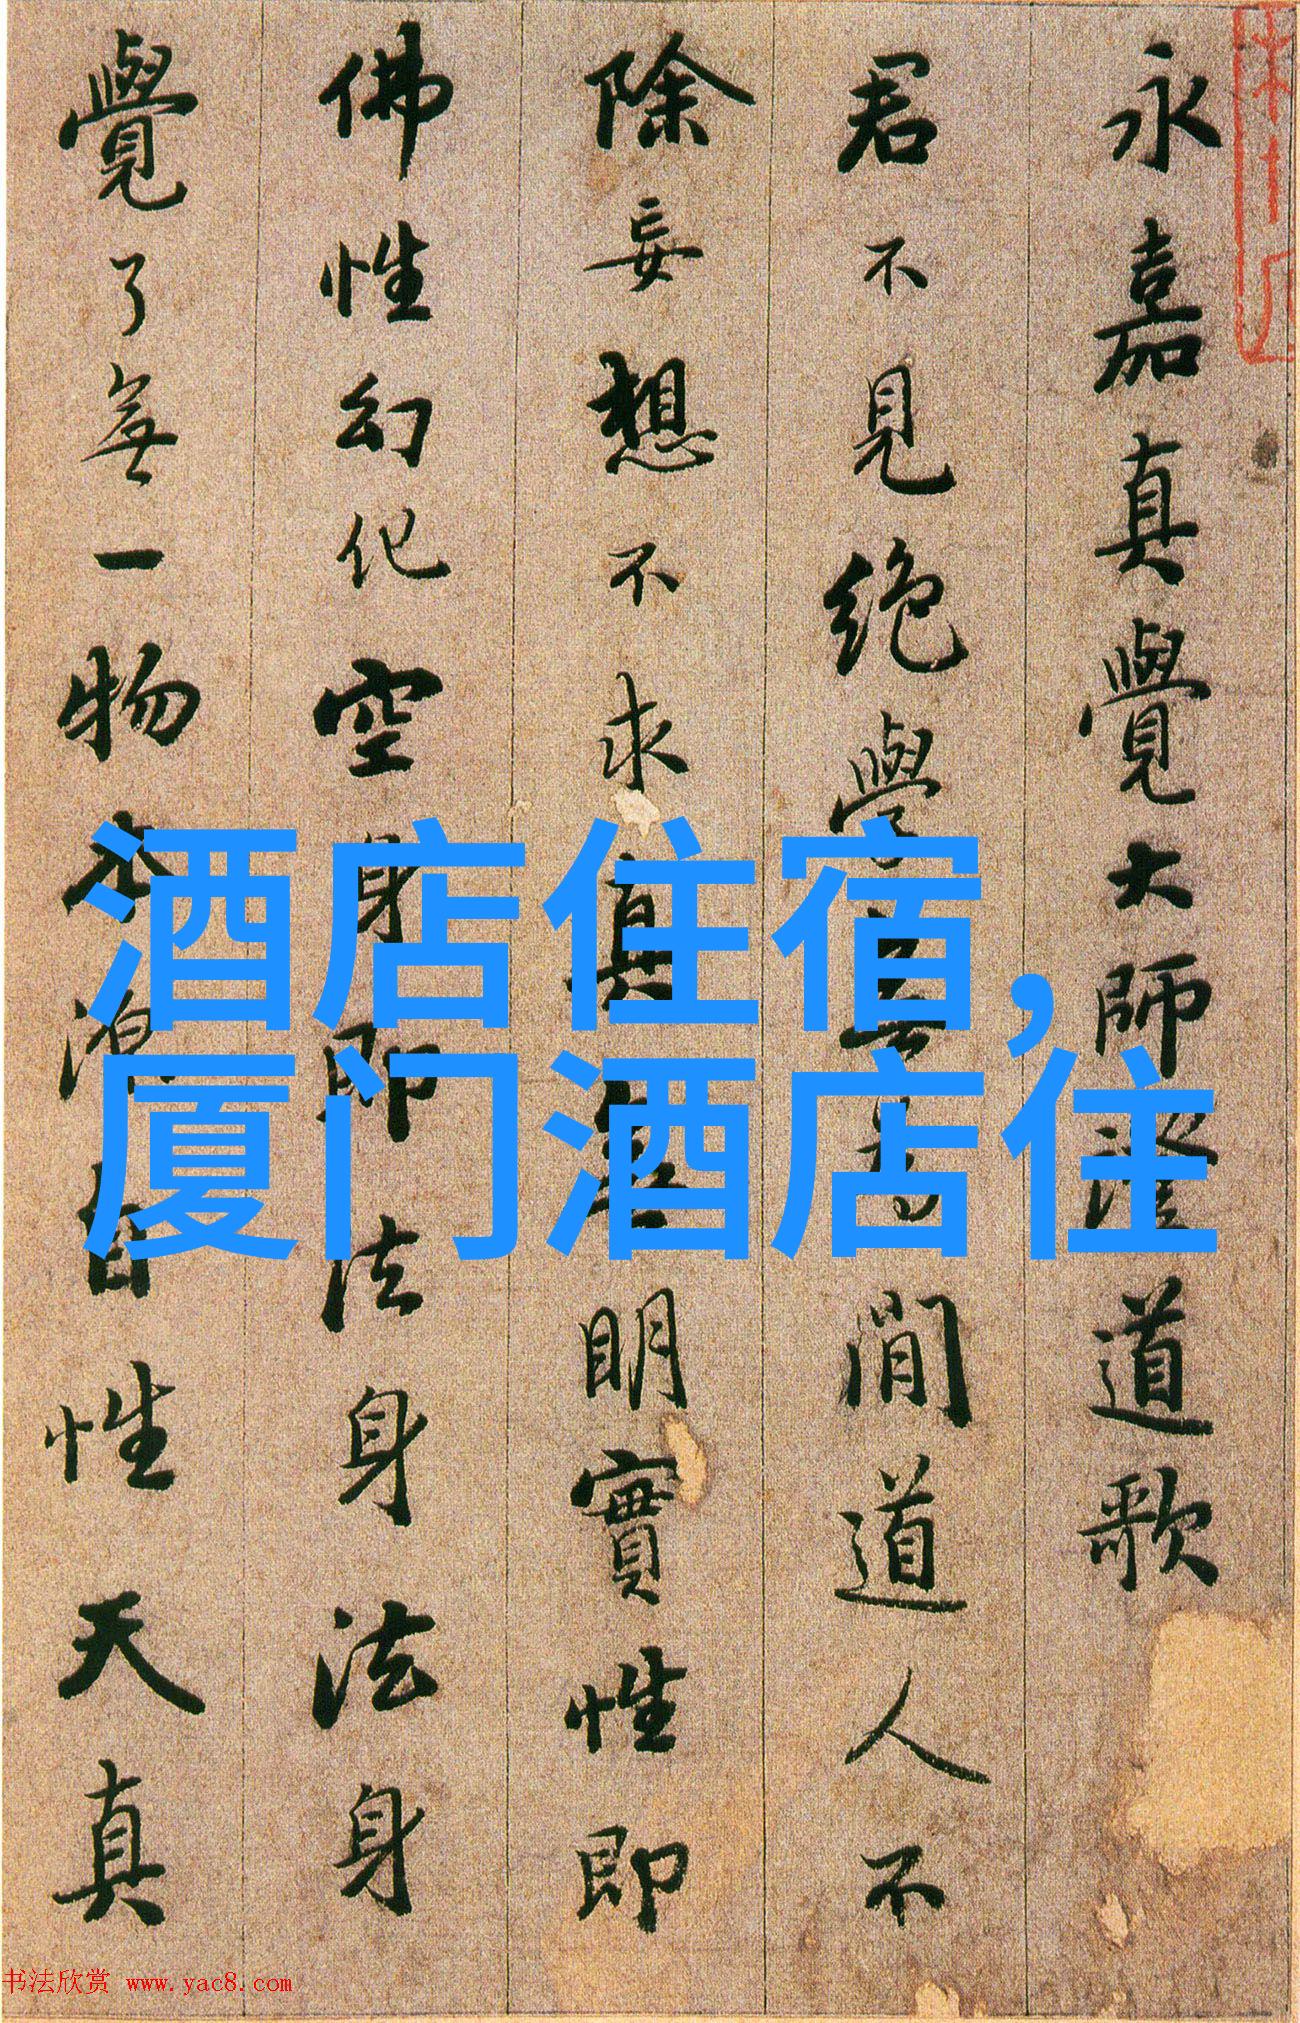 永嘉真覺大師證道歌
君不見絕學無為閒道人不
除妄想不求真無明實性即
佛性幻化空身即法身法身
覺了無一物本源自性天真
酒店住宿,
厦门酒店住
书法欣赏 www.yac8.com